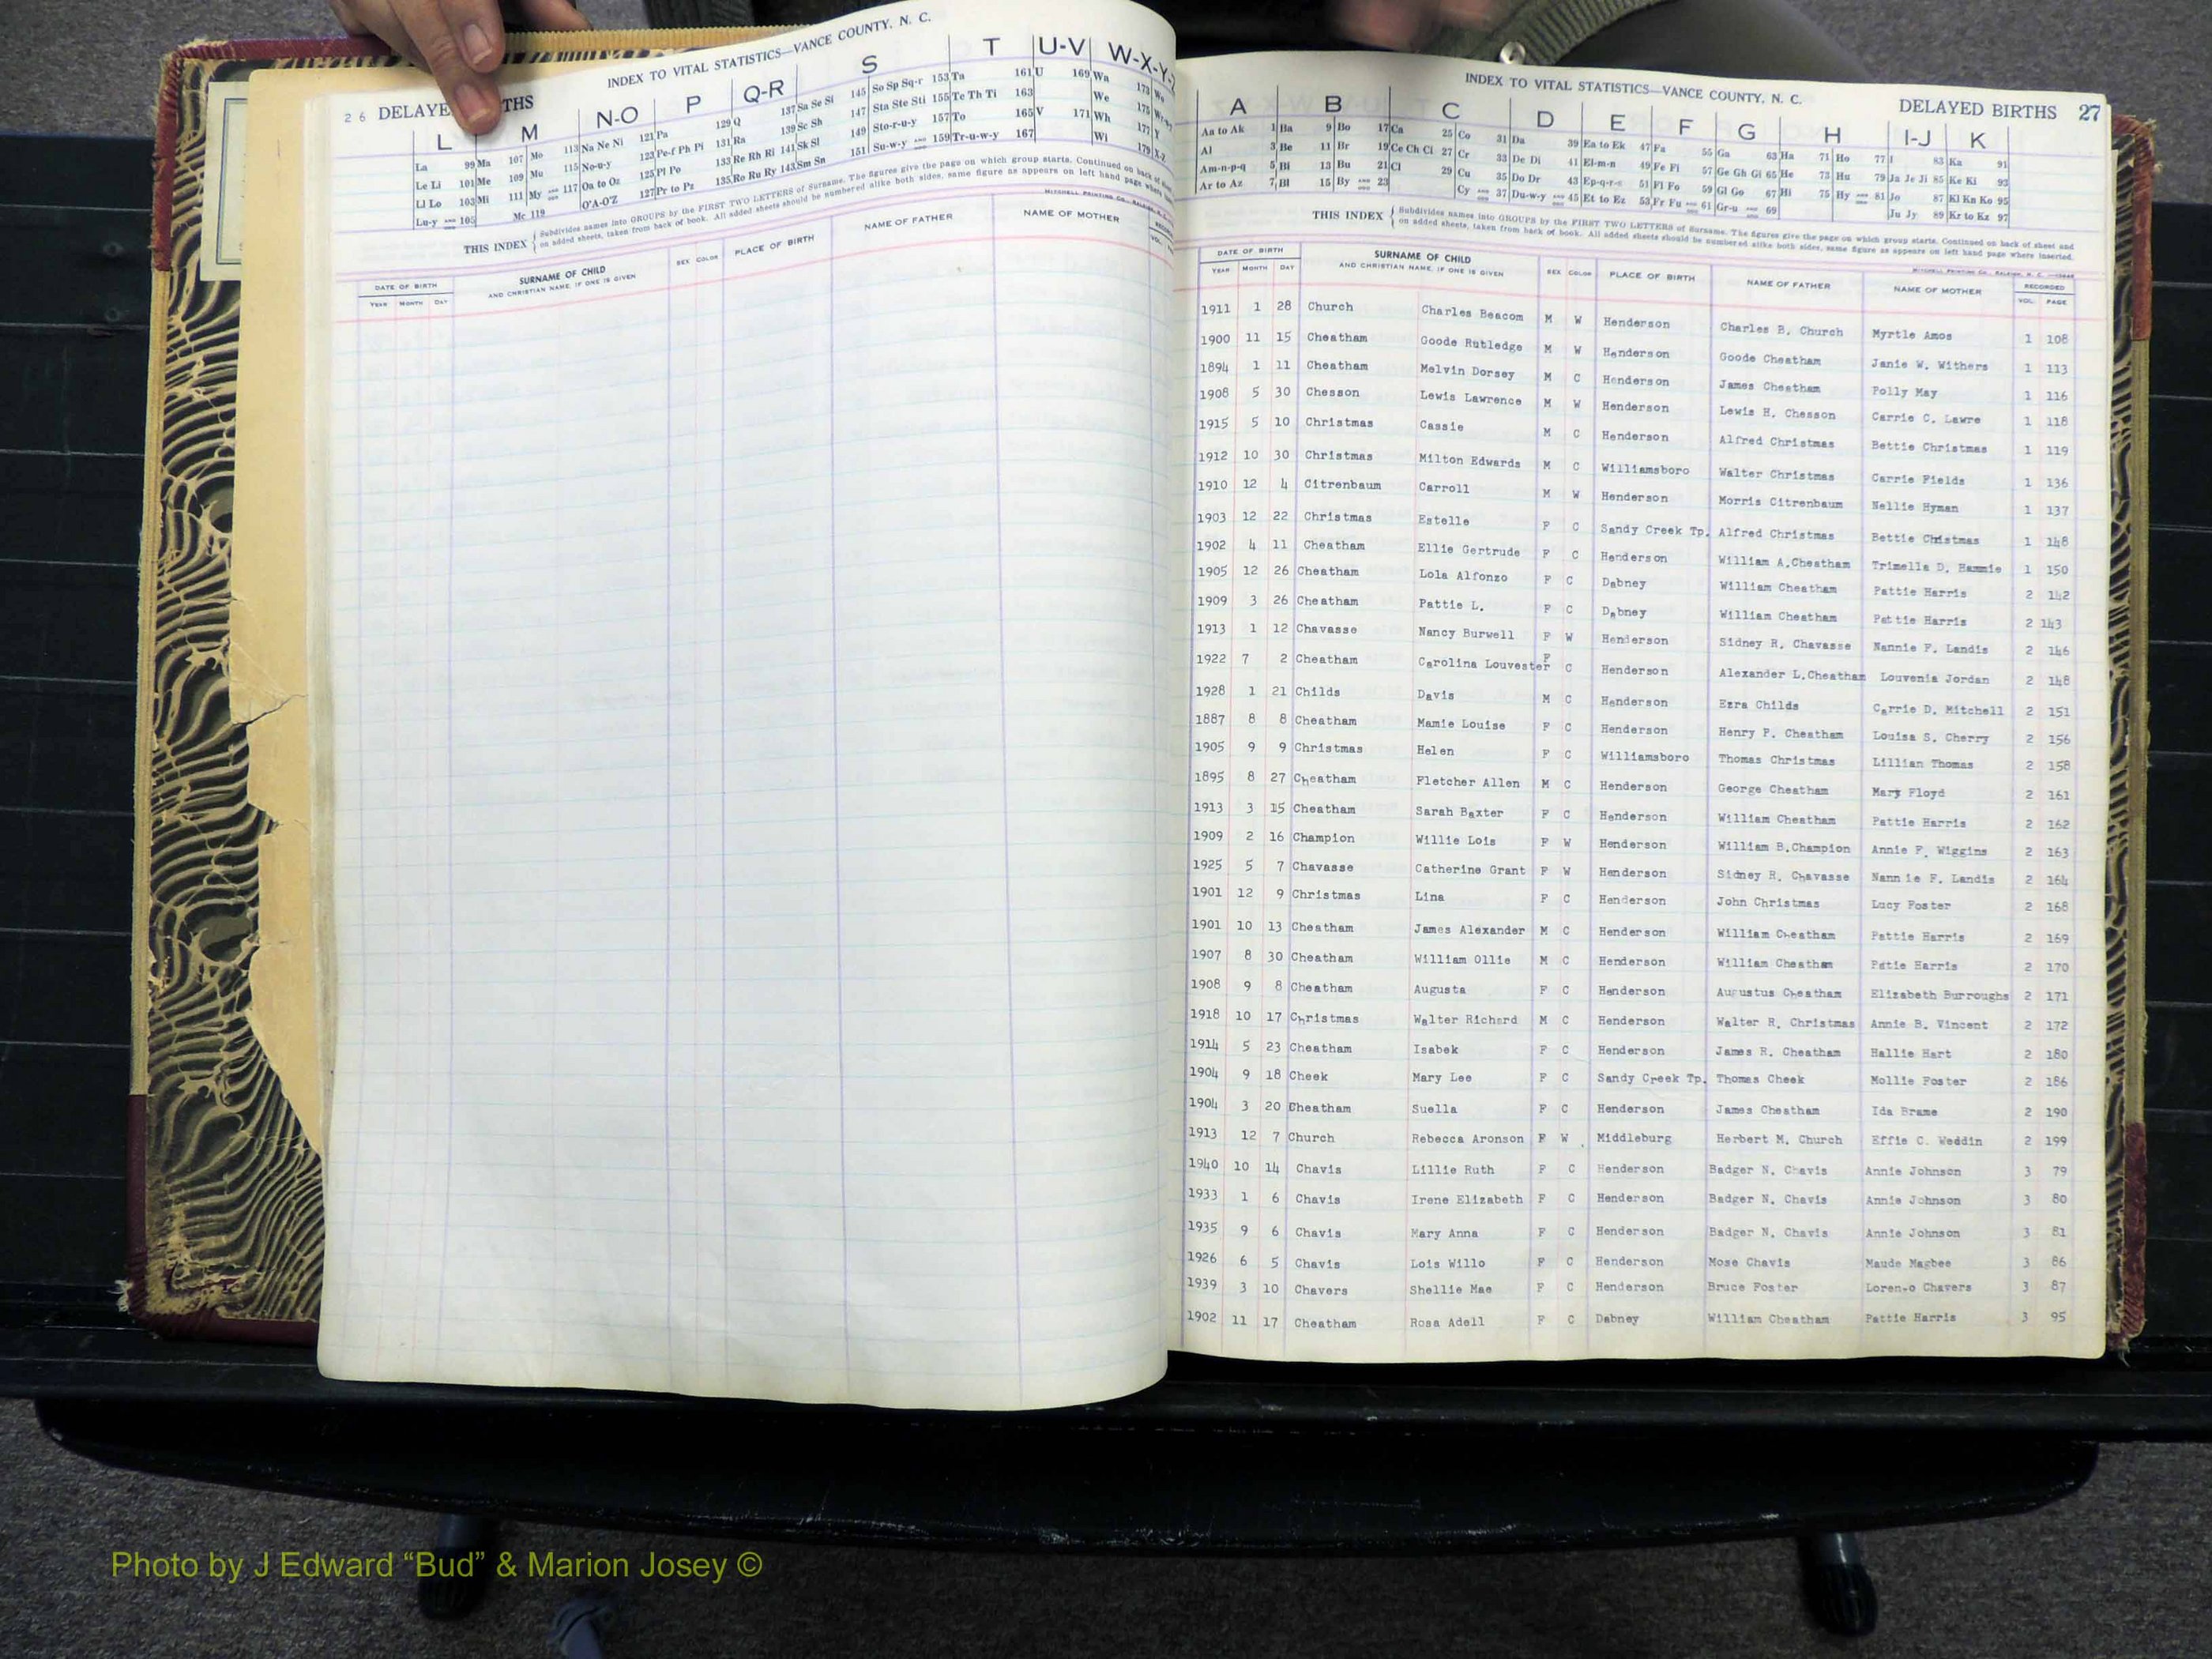 INDEX TO VITAL STATISTICS—VANCE COUNTY, N. C.
26 DELAYE THS
L M N-O P Q-R S T U-V W-X-Y-
La 99 Ma 107 Mo 113 Na Ne Ni 121 Pa 129 Q 137 Sa Se Si 145 So Sp Sq-r 153 Ta 161 U 169 Wa 173
Le Li 101 Me 109 Mu 115 No-u-y 123 Pe-f Ph Pi 131 Ra 139 Sc Sh 147 Sta Ste Sti 155 Te Th Ti 163 We 175
Ll Lo 103 Mi 111 My 117 Oa to Oz 125 Pl Po 133 Re Rh Ri 141 Sk Sl 149 Sto-r-u-y 157 To 165 V 171 Wh 177 Y
Lu-y 105 Mc 119 O'A-O'Z 127 Pr to Pz 135 Ro Ru Ry 143 Sm Sn 151 Su-w-y 159 Tr-u-w-y 167 Wi 179 X-Z
THIS INDEX
Subdivides names into GROUPS by the FIRST TWO LETTERS of Surname. The figures give the page on which group starts. Continued on back of
on added sheets, taken from back of book. All added sheets should be numbered alike both sides, same figure as appears on left hand page where
DATE OF BIRTH SURNAME OF CHILD SEX COLOR PLACE OF BIRTH NAME OF FATHER NAME OF MOTHER
YEAR MONTH DAY AND CHRISTIAN NAME, IF ONE IS GIVEN VOL.
INDEX TO VITAL STATISTICS—VANCE COUNTY, N. C.
DELAYED BIRTHS 27
A B C D E F G H I-J K
Aa to Ak 1 Ba 9 Bo 17 Ca 25 Co 31 Da 39 Ea to Ek 47 Fa 55 Ga 63 Ha 71 Ho 77 I 83 Ka 91
Al 3 Be 11 Br 19 Ce Ch Ci 27 Cr 33 De Di 41 El-m-n 49 Fe Fi 57 Ge Gh Gi 65 He 73 Hu 79 Ja Je Ji 85 Ke Ki 93
Am-n-p-q 5 Bi 13 Bu 21 Cl 29 Cu 35 Do Dr 43 Ep-q-r-s 51 Fl Fo 59 Gl Go 67 Hi 75 Hy 81 Jo 87 Kl Kn Ko 95
Ar to Az 7 Bl 15 By 23 Cy 37 Du-w-y 45 Et to Ez 53 Fr Fu 61 Gr-u 69 Ju Jy 89 Kr to Kz 97
THIS INDEX
Subdivides names into GROUPS by the FIRST TWO LETTERS of Surname. The figures give the page on which group starts. Continued on back of sheet and
on added sheets, taken from back of book. All added sheets should be numbered alike both sides, same figure as appears on left hand page where inserted.
DATE OF BIRTH SURNAME OF CHILD SEX COLOR PLACE OF BIRTH NAME OF FATHER NAME OF MOTHER RECORDED
YEAR MONTH DAY AND CHRISTIAN NAME, IF ONE IS GIVEN VOL. PAGE
1911 1 28 Church Charles Beacom M W Henderson Charles B. Church Myrtle Amos 1 108
1900 11 15 Cheatham Goode Rutledge M W Henderson Goode Cheatham Janie W. Withers 1 113
1894 1 11 Cheatham Melvin Dorsey M C Henderson James Cheatham Polly May 1 116
1908 5 30 Chesson Lewis Lawrence M W Henderson Lewis H. Chesson Carrie C. Lawre 1 118
1915 5 10 Christmas Cassie M C Henderson Alfred Christmas Bettie Christmas 1 119
1912 10 30 Christmas Milton Edwards M C Williamsboro Walter Christmas Carrie Fields 1 136
1910 12 4 Citrenbaum Carroll M W Henderson Morris Citrenbaum Nellie Hyman 1 137
1903 12 22 Christmas Estelle F C Sandy Creek Tp. Alfred Christmas Bettie Christmas 1 148
1902 4 11 Cheatham Ellie Gertrude F C Henderson William A.Cheatham Trimella D. Hammie 1 150
1905 12 26 Cheatham Lola Alfonzo F C Dabney William Cheatham Pattie Harris 2 142
1909 3 26 Cheatham Pattie L. F C Dabney William Cheatham Pattie Harris 2 143
1913 1 12 Chavasse Nancy Burwell F W Henderson Sidney R. Chavasse Nannie F. Landis 2 146
1922 7 2 Cheatham Carolina Louvester F C Henderson Alexander L.Cheatham Louvenia Jordan 2 148
1928 1 21 Childs Davis M C Henderson Ezra Childs Carrie D. Mitchell 2 151
1887 8 8 Cheatham Mamie Louise F C Henderson Henry P. Cheatham Louisa S. Cherry 2 156
1905 9 9 Christmas Helen F C Williamsboro Thomas Christmas Lillian Thomas 2 158
1895 8 27 Cheatham Fletcher Allen M C Henderson George Cheatham Mary Floyd 2 161
1913 3 15 Cheatham Sarah Baxter F C Henderson William Cheatham Pattie Harris 2 162
1909 2 16 Champion Willie Lois F W Henderson William B.Champion Annie F. Wiggins 2 163
1925 5 7 Chavasse Catherine Grant F W Henderson Sidney R. Chavasse Nannie F. Landis 2 164
1901 12 9 Christmas Lina F C Henderson John Christmas Lucy Foster 2 168
1901 10 13 Cheatham James Alexander M C Henderson William Cheatham Pattie Harris 2 169
1907 8 30 Cheatham William Ollie M C Henderson William Cheatham Patie Harris 2 170
1908 9 8 Cheatham Augusta F C Henderson Augustus Cheatham Elizabeth Burroughs 2 171
1918 10 17 Christmas Walter Richard M C Henderson Walter R. Christmas Annie B. Vincent 2 172
1914 5 23 Cheatham Isabek F C Henderson James R. Cheatham Hallie Hart 2 180
1904 9 18 Cheek Mary Lee F C Sandy Creek Tp. Thomas Cheek Mollie Foster 2 186
1904 3 20 Cheatham Suella F C Henderson James Cheatham Ida Brame 2 190
1913 12 7 Church Rebecca Aronson F W Middleburg Herbert M. Church Effie C. Weddin 2 199
1940 10 14 Chavis Lillie Ruth F C Henderson Badger N. Chavis Annie Johnson 3 79
1933 1 6 Chavis Irene Elizabeth F C Henderson Badger N. Chavis Annie Johnson 3 80
1935 9 6 Chavis Mary Anna F C Henderson Badger N. Chavis Annie Johnson 3 81
1926 6 5 Chavis Lois Willo F C Henderson Mose Chavis Maude Magbee 3 86
1939 3 10 Chavers Shellie Mae F C Henderson Bruce Foster Loren-o Chavers 3 87
1902 11 17 Cheatham Rosa Adell F C Dabney William Cheatham Pattie Harris 3 95
Photo by J Edward “Bud” & Marion Josey ©